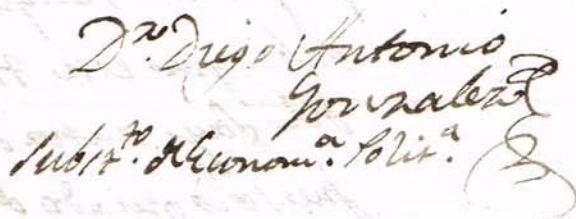 Dr. Diego Antonio
Gonzalez
Subst.to de Econom.a Polit.a